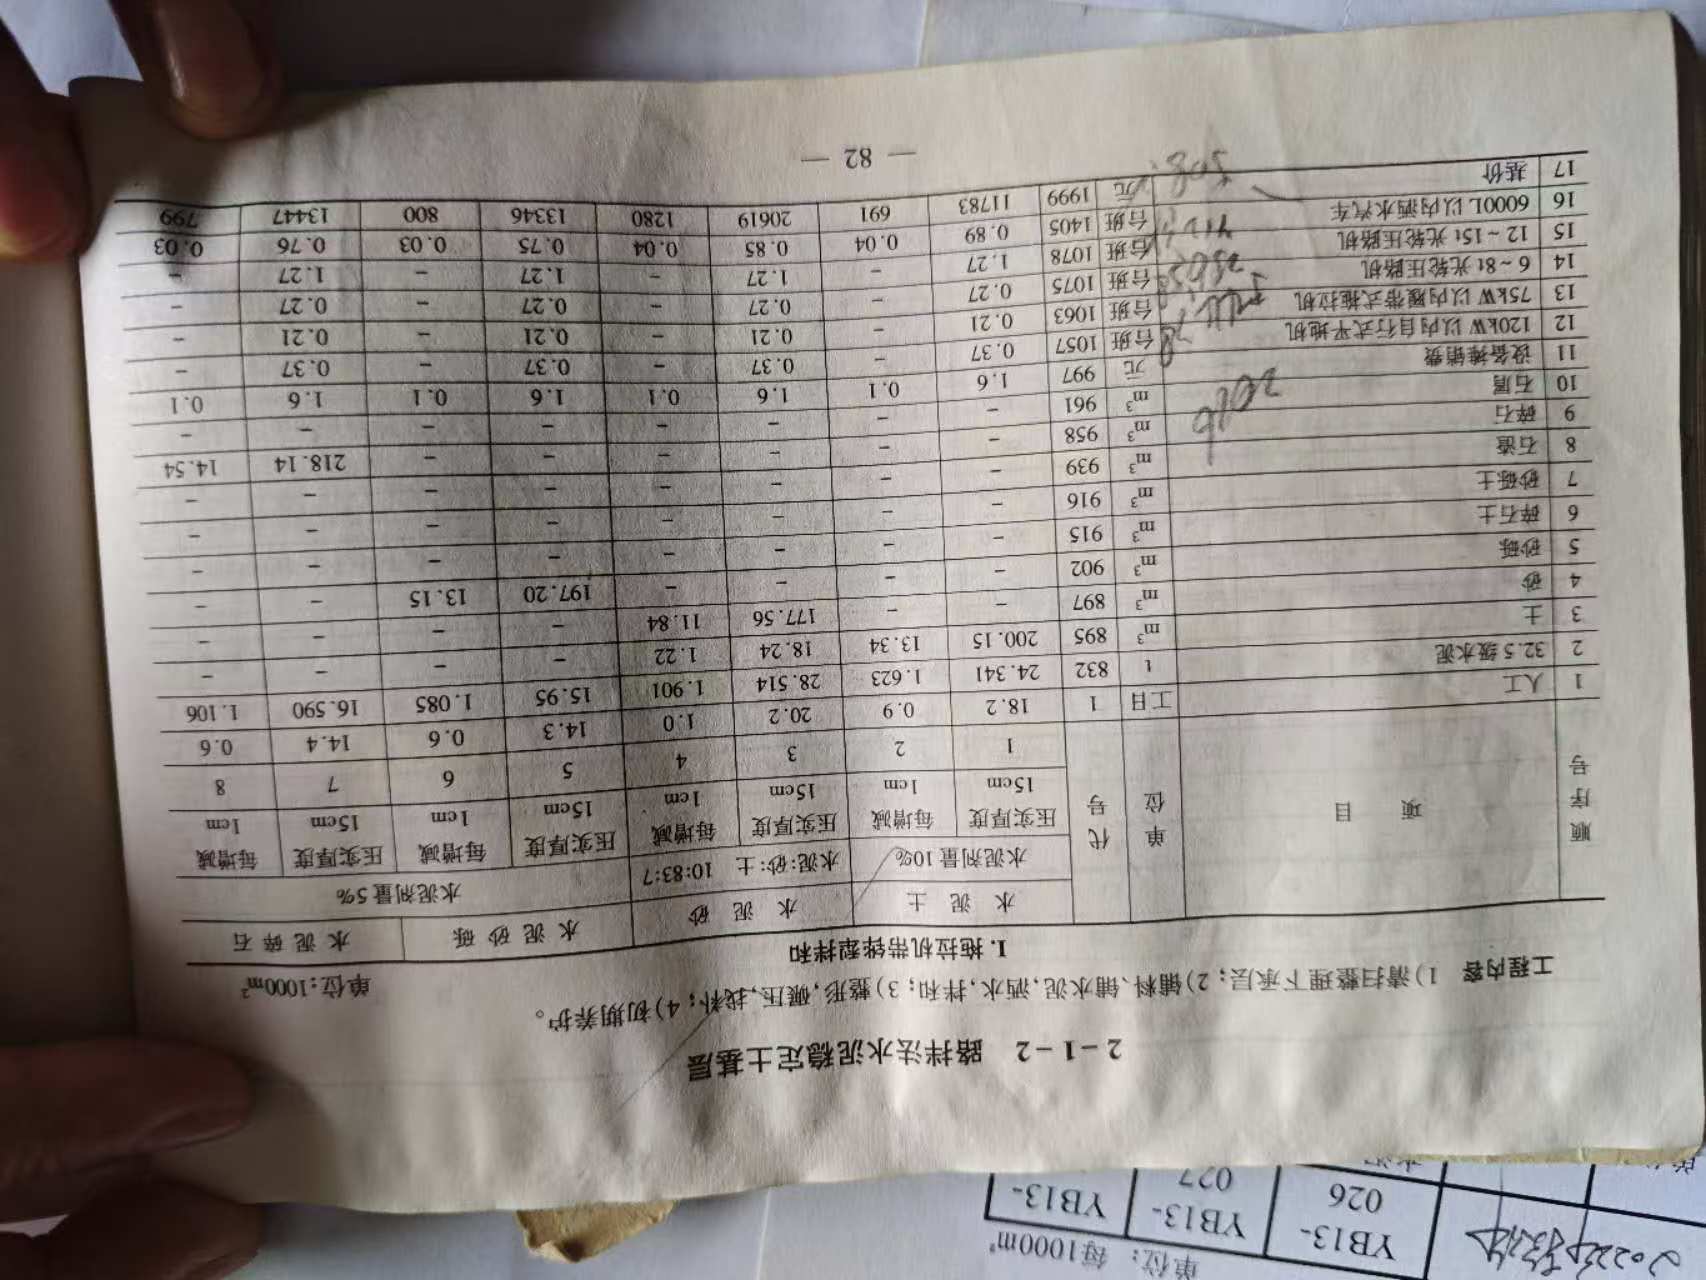 2-1-2 路拌法水泥稳定土基层
工程内容 1)清扫整理下承层;2)铺料、铺水泥,洒水,拌和;3)整形,碾压,找补;4)初期养护。
1.拖拉机带铧犁拌和
单位:1000m²
顺序号 项目 单位 代号 水泥土 水泥砂 水泥砂砾 水泥碎石
水泥剂量10% 水泥:砂:土 10:83:7 水泥剂量5%
压实厚度15cm 每增减1cm 压实厚度15cm 每增减1cm 压实厚度15cm 每增减1cm 压实厚度15cm 每增减1cm
1 2 3 4 5 6 7 8
1 人工 工日 1 18.2 0.9 20.2 1.0 14.3 0.6 14.4 0.6
2 32.5级水泥 t 832 24.341 1.623 28.514 1.901 15.95 1.085 16.590 1.106
3 土 m³ 895 200.15 13.34 18.24 1.22 - - - -
4 砂 m³ 897 - - 177.56 11.84 - - - -
5 砂砾 m³ 902 - - - - 197.20 13.15 - -
6 碎石土 m³ 915 - - - - - - - -
7 砂砾土 m³ 916 - - - - - - - -
8 石渣 m³ 939 - - - - - - - -
9 碎石 m³ 958 - - - - - - 218.14 14.54
10 石屑 m³ 961 - - - - - - - -
11 设备摊销费 元 997 1.6 0.1 1.6 0.1 1.6 0.1 1.6 0.1
12 120kW以内自行式平地机 台班 1057 0.37 - 0.37 - 0.37 - 0.37 -
13 75kW以内履带式拖拉机 台班 1063 0.21 - 0.21 - 0.21 - 0.21 -
14 6~8t光轮压路机 台班 1075 0.27 - 0.27 - 0.27 - 0.27 -
15 12~15t光轮压路机 台班 1078 1.27 - 1.27 - 1.27 - 1.27 -
16 6000L以内洒水汽车 台班 1405 0.89 0.04 0.85 0.04 0.75 0.03 0.76 0.03
17 基价 元 1999 11783 691 20619 1280 13346 800 13447 799
— 82 —
单位:每1000m²
YB13-026 YB13-027 YB13-